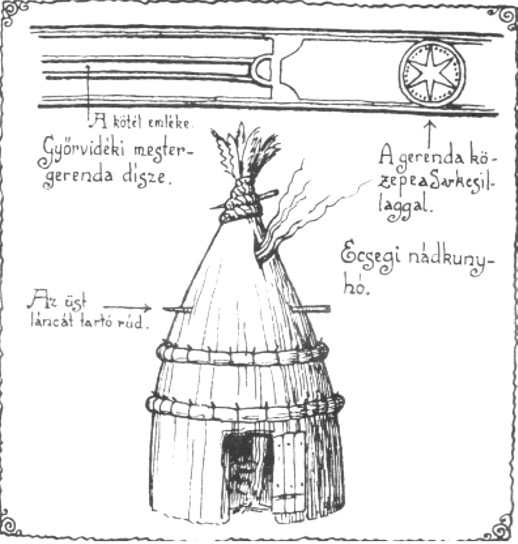 A kötél emléke.
Győrvidéki mester-
gerenda dísze.
A gerenda kö-
zepe a Sarkcsil-
laggal.
Ecsegi nádkuny-
hó.
Az üst
láncát tartó rúd.